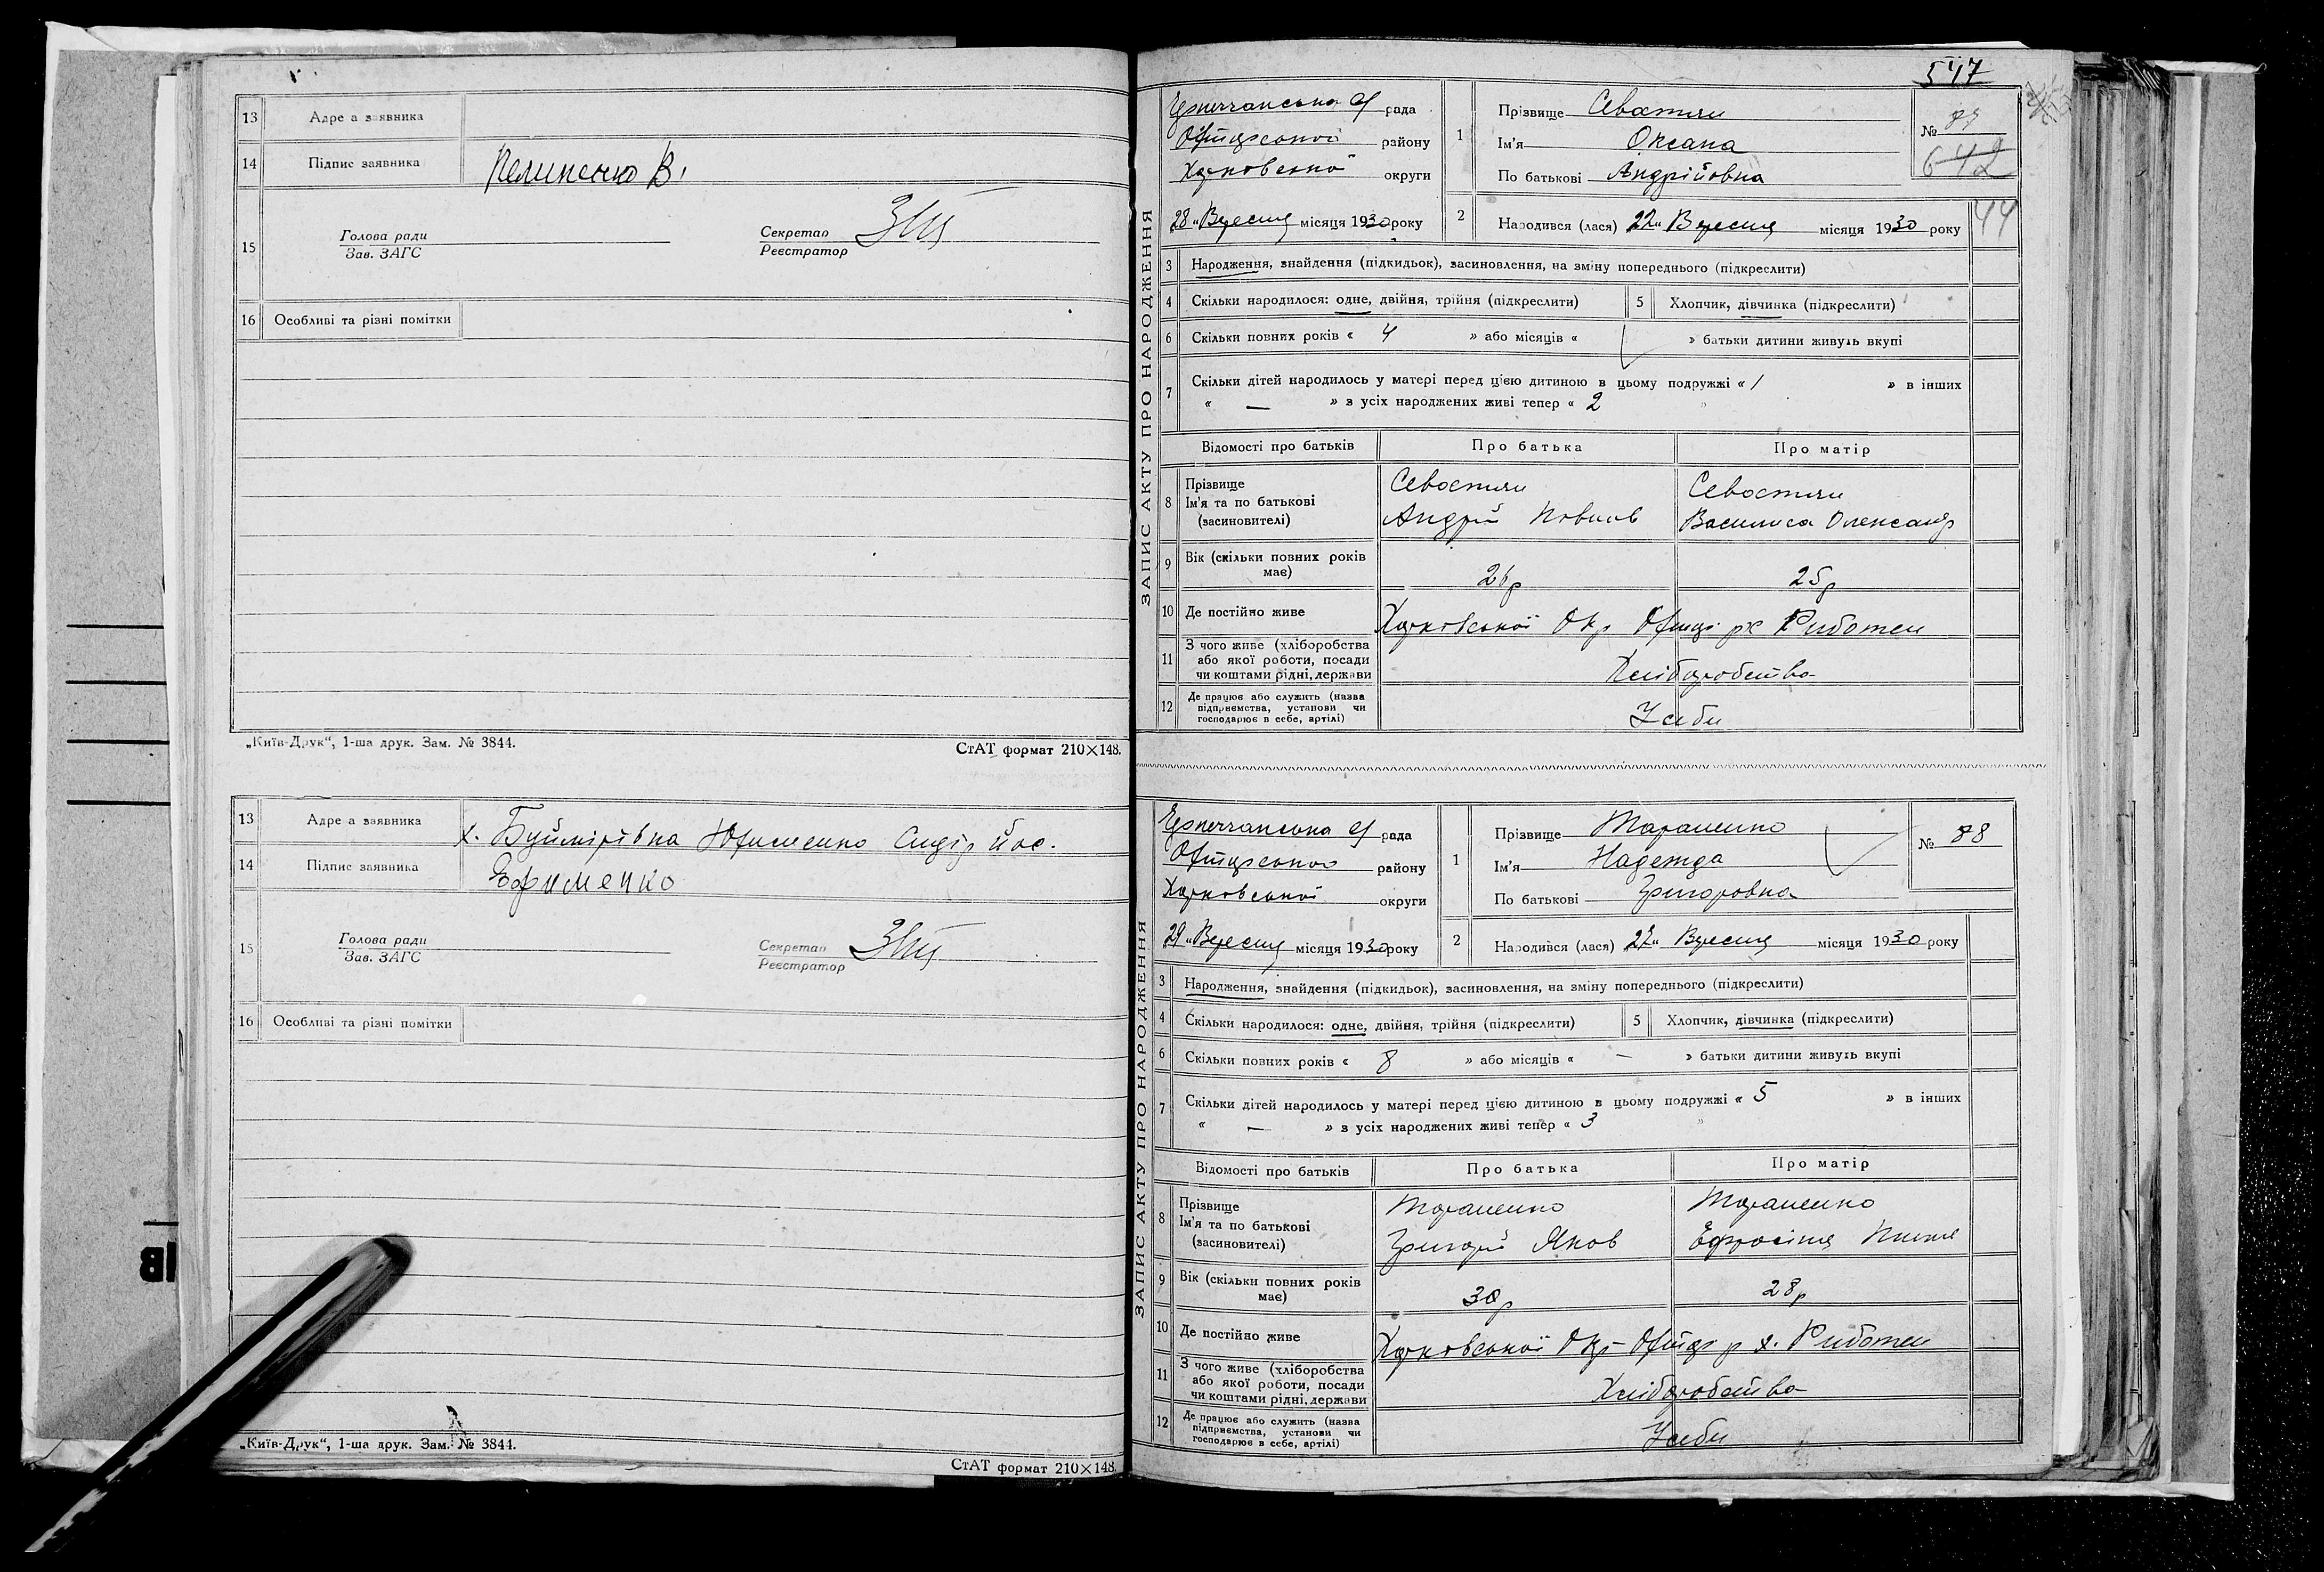 13 Адре а заявника
14 Підпис заявника Пелипенко В.
15 Голова ради Секретар
Зав. ЗАГС Реєстратор
16 Особливі та різні помітки
„Київ-Друк“, 1-ша друк. Зам. № 3844.
СтАТ формат 210×148.
13 Адре а заявника х. Буймірівка Юхименко Сидір Йос.
14 Підпис заявника Ефименко
15 Голова ради Секретар
Зав. ЗАГС Реєстратор
16 Особливі та різні помітки
„Київ-Друк“, 1-ша друк. Зам. № 3844.
СтАТ формат 210×148.
547
ЗАПИС АКТУ ПРО НАРОДЖЕННЯ
рада
району
Харковської округи
28 „ Вересня місяця 1930 року
1 Прізвище Севостьян
Ім'я Оксана
По батькові Андрійовна
№ 87
642
2 Народився (лася) 22 „ Вересня місяця 1930 року
44
3 Народження, знайдення (підкидьок), засиновлення, на зміну попереднього (підкреслити)
4 Скільки народилося: одне, двійня, трійня (підкреслити) 5 Хлопчик, дівчинка (підкреслити)
6 Скільки повних років « 4 » або місяців « » батьки дитини живуть вкупі
7 Скільки дітей народилось у матері перед цією дитиною в цьому подружжі « 1 » в інших
« — » з усіх народжених живі тепер « 2 »
Відомості про батьків Про батька Про матір
8 Прізвище Севостьян Севостьян
Ім'я та по батькові Андрій Василиса Олександр
(засиновителі)
9 Вік (скільки повних років має) 26р 25р
10 Де постійно живе Харківської Окр Риботень
11 З чого живе (хліборобства або якої роботи, посади чи коштами рідні, держави Хліборобство
12 Де працює або служить (назва підприємства, установи чи господарює в себе, артілі) У себе
ЗАПИС АКТУ ПРО НАРОДЖЕННЯ
рада
району
Харковської округи
29 „ Вересня місяця 1930 року
1 Прізвище Тараненко
Ім'я Надежда
По батькові Григоровна
№ 88
2 Народився (лася) 27 „ Вересня місяця 1930 року
3 Народження, знайдення (підкидьок), засиновлення, на зміну попереднього (підкреслити)
4 Скільки народилося: одне, двійня, трійня (підкреслити) 5 Хлопчик, дівчинка (підкреслити)
6 Скільки повних років « 8 » або місяців « — » батьки дитини живуть вкупі
7 Скільки дітей народилось у матері перед цією дитиною в цьому подружжі « 5 » в інших
« — » з усіх народжених живі тепер « 3 »
Відомості про батьків Про батька Про матір
8 Прізвище Тараненко Тараненко
Ім'я та по батькові Григорій Яков Єфросінія
(засиновителі)
9 Вік (скільки повних років має) 30р 28р
10 Де постійно живе Харковської Окр р х. Риботень
11 З чого живе (хліборобства або якої роботи, посади чи коштами рідні, держави Хліборобство
12 Де працює або служить (назва підприємства, установи чи господарює в себе, артілі) У себе